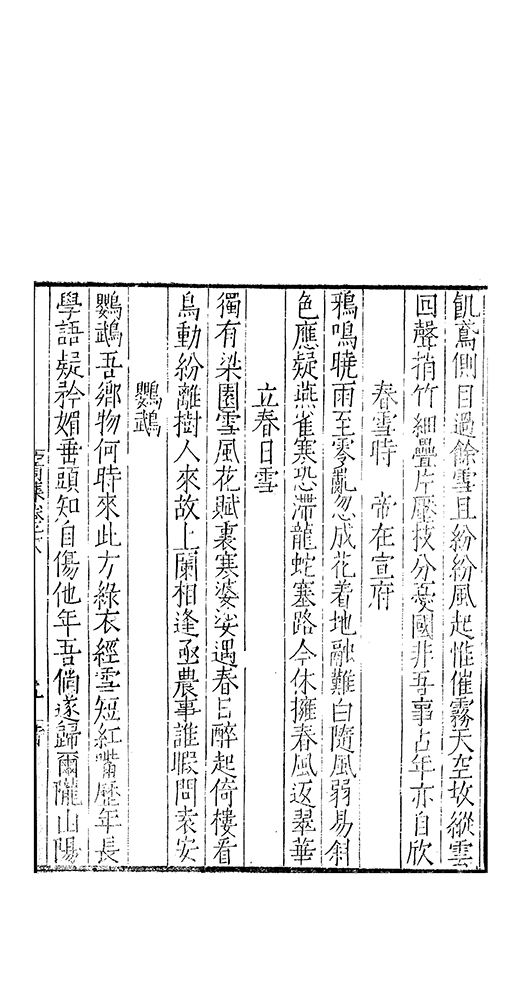 飢鳶側目過餘雪且紛紛風起惟催霧天空故縱雲
回聲捎竹細疊片壓枝分憂國非吾事占年亦自欣
春雪時 帝在宣府
鴉鳴曉雨至零亂忽成花着地融難白隨風弱易斜
色應疑燕雀寒恐滯龍蛇塞路今休擁春風返翠華
立春日雪
獨有梁園雪風花賦裏寒婆娑遇春日醉起倚樓看
鳥動紛離樹人來故上闌相逢亟農事誰暇問袁安
鸚鵡
鸚鵡吾鄉物何時來此方綠衣經雪短紅觜歷年長
學語疑矜媚垂頭知自傷他年吾倘遂歸爾隴山陽
空同集卷之